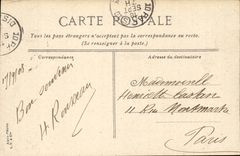 CARTE POSTALE
Tous les pays étrangers n'acceptent pas la correspondance au recto.
(Se renseigner à la poste)
Correspondance
Adresse du destinataire
17/9/08
Bon souvenir
H. Rousseau
Mademoiselle
Henriette
11 Rue Montmartre
Paris